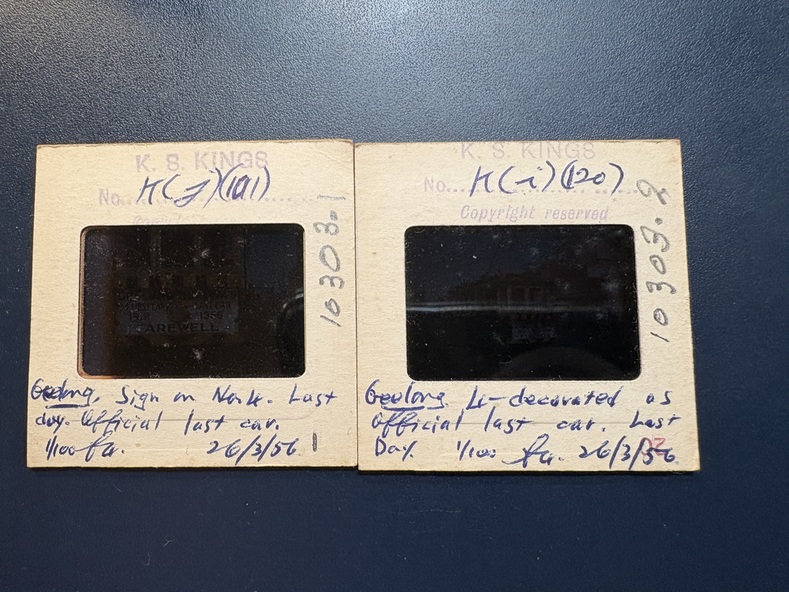 K. S. KINGS
No.
K(j)(101)
10303.1
FAREWELL
Geelong. Sign on No. 4. Last
day. Official last car.
1/100 26/3/56 1
K. S. KINGS
No.
K(i)(120)
Copyright reserved
10303.2
Geelong 4-decorated as
Official last car. Last
Day. 1/100 26/3/56